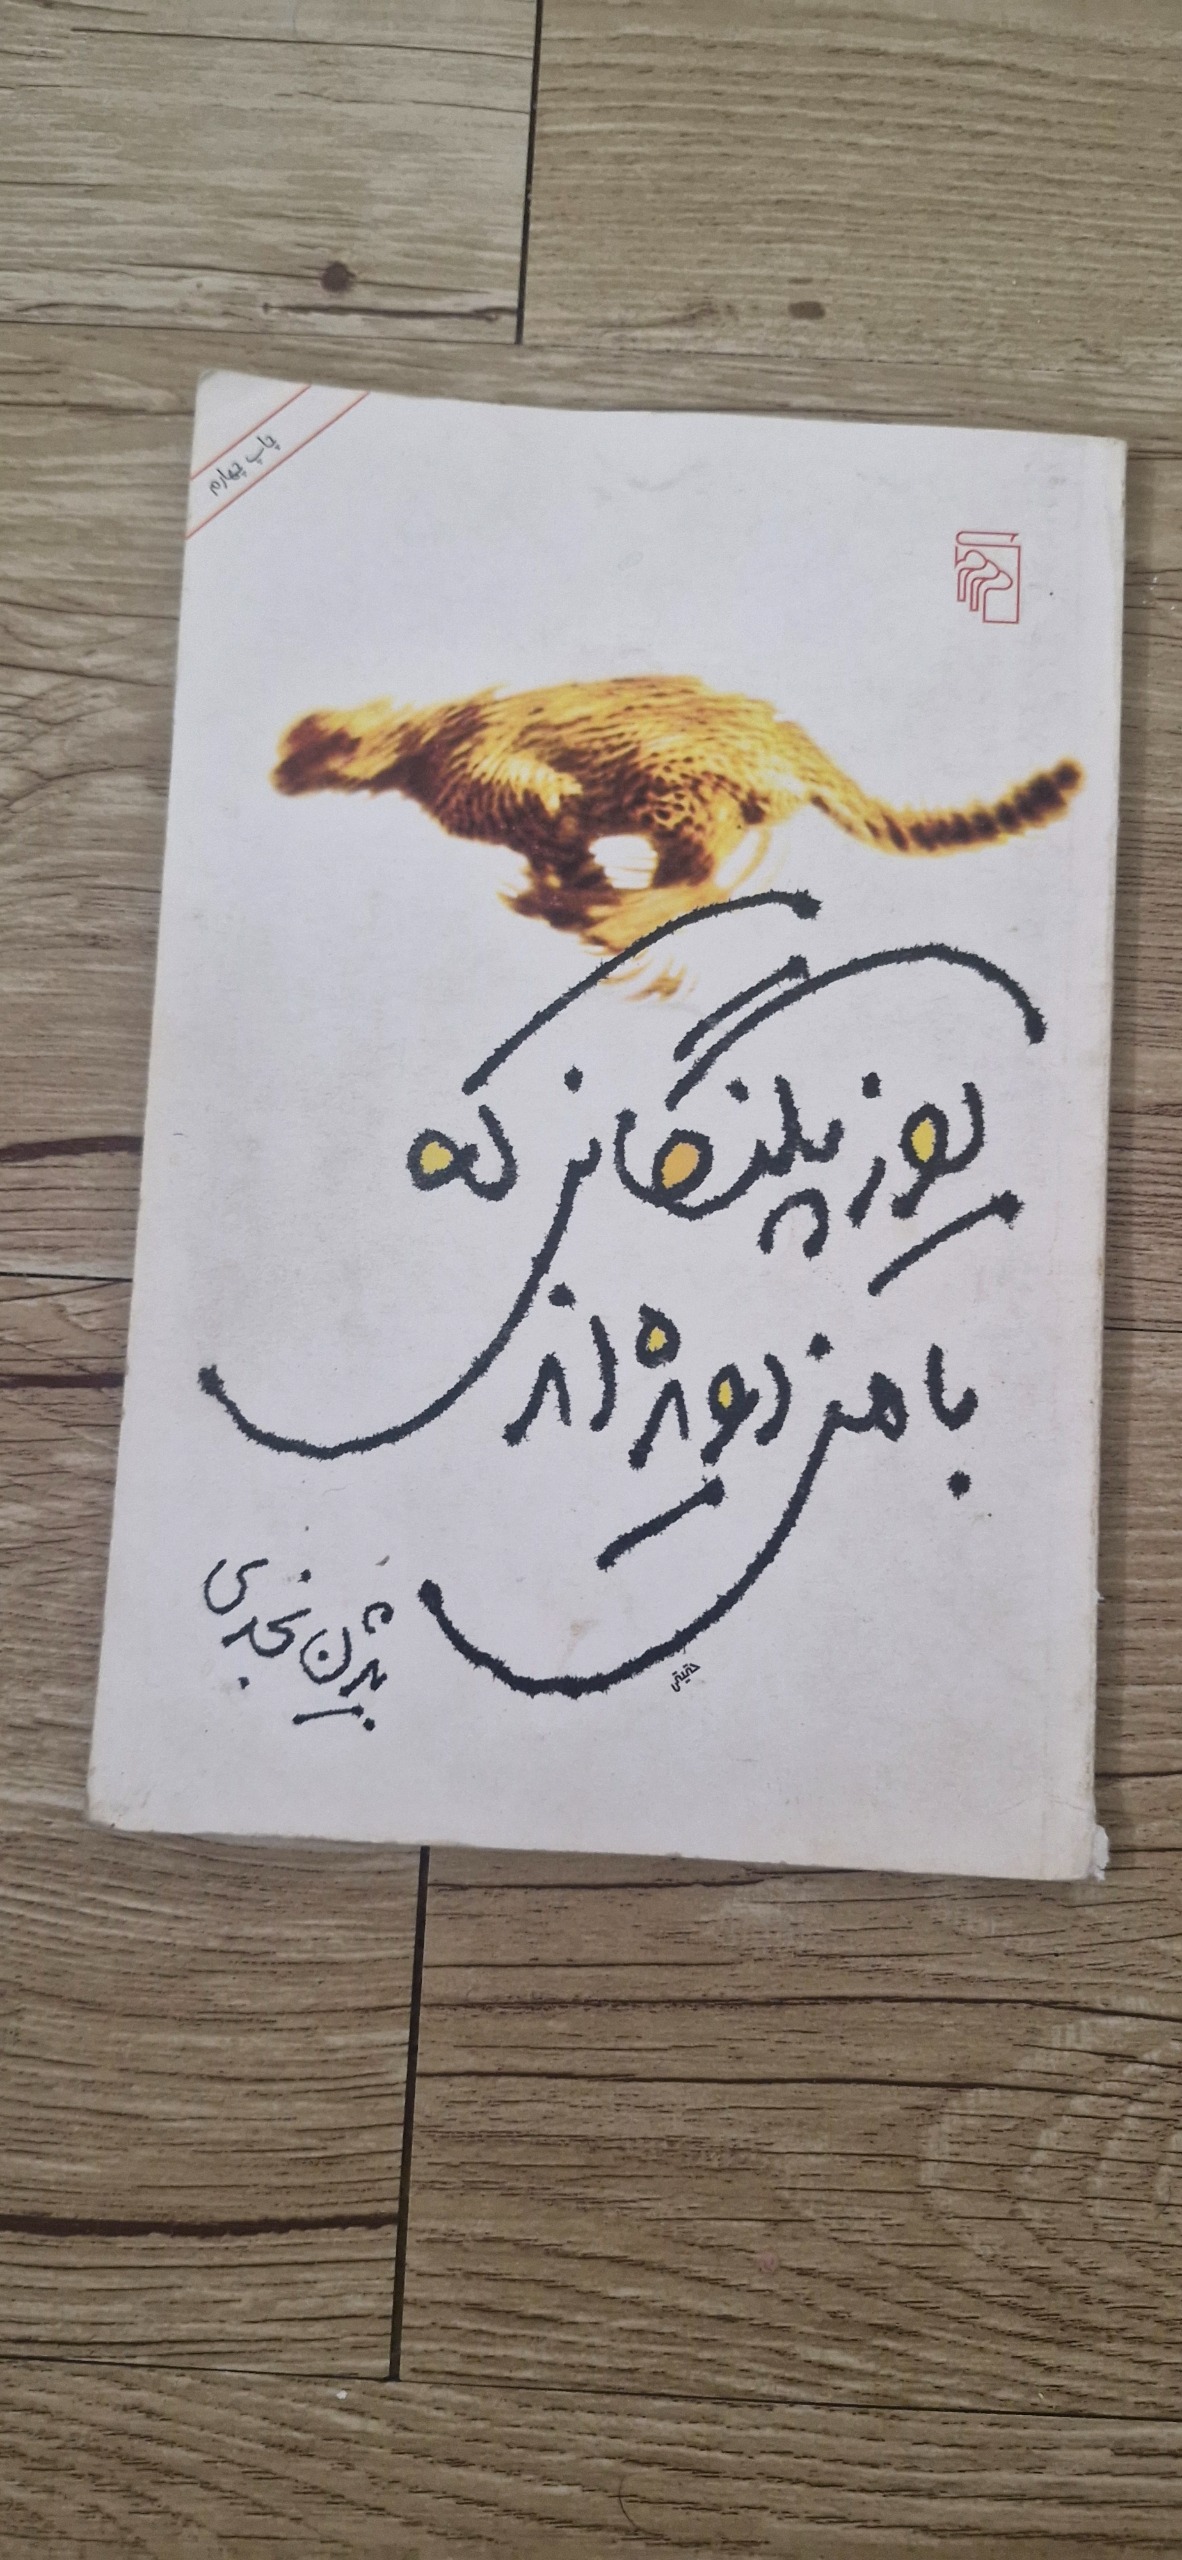 چاپ چهارم
یوزپلنگانی که
با من دویده‌اند
بیژن نجدی
حقیقی